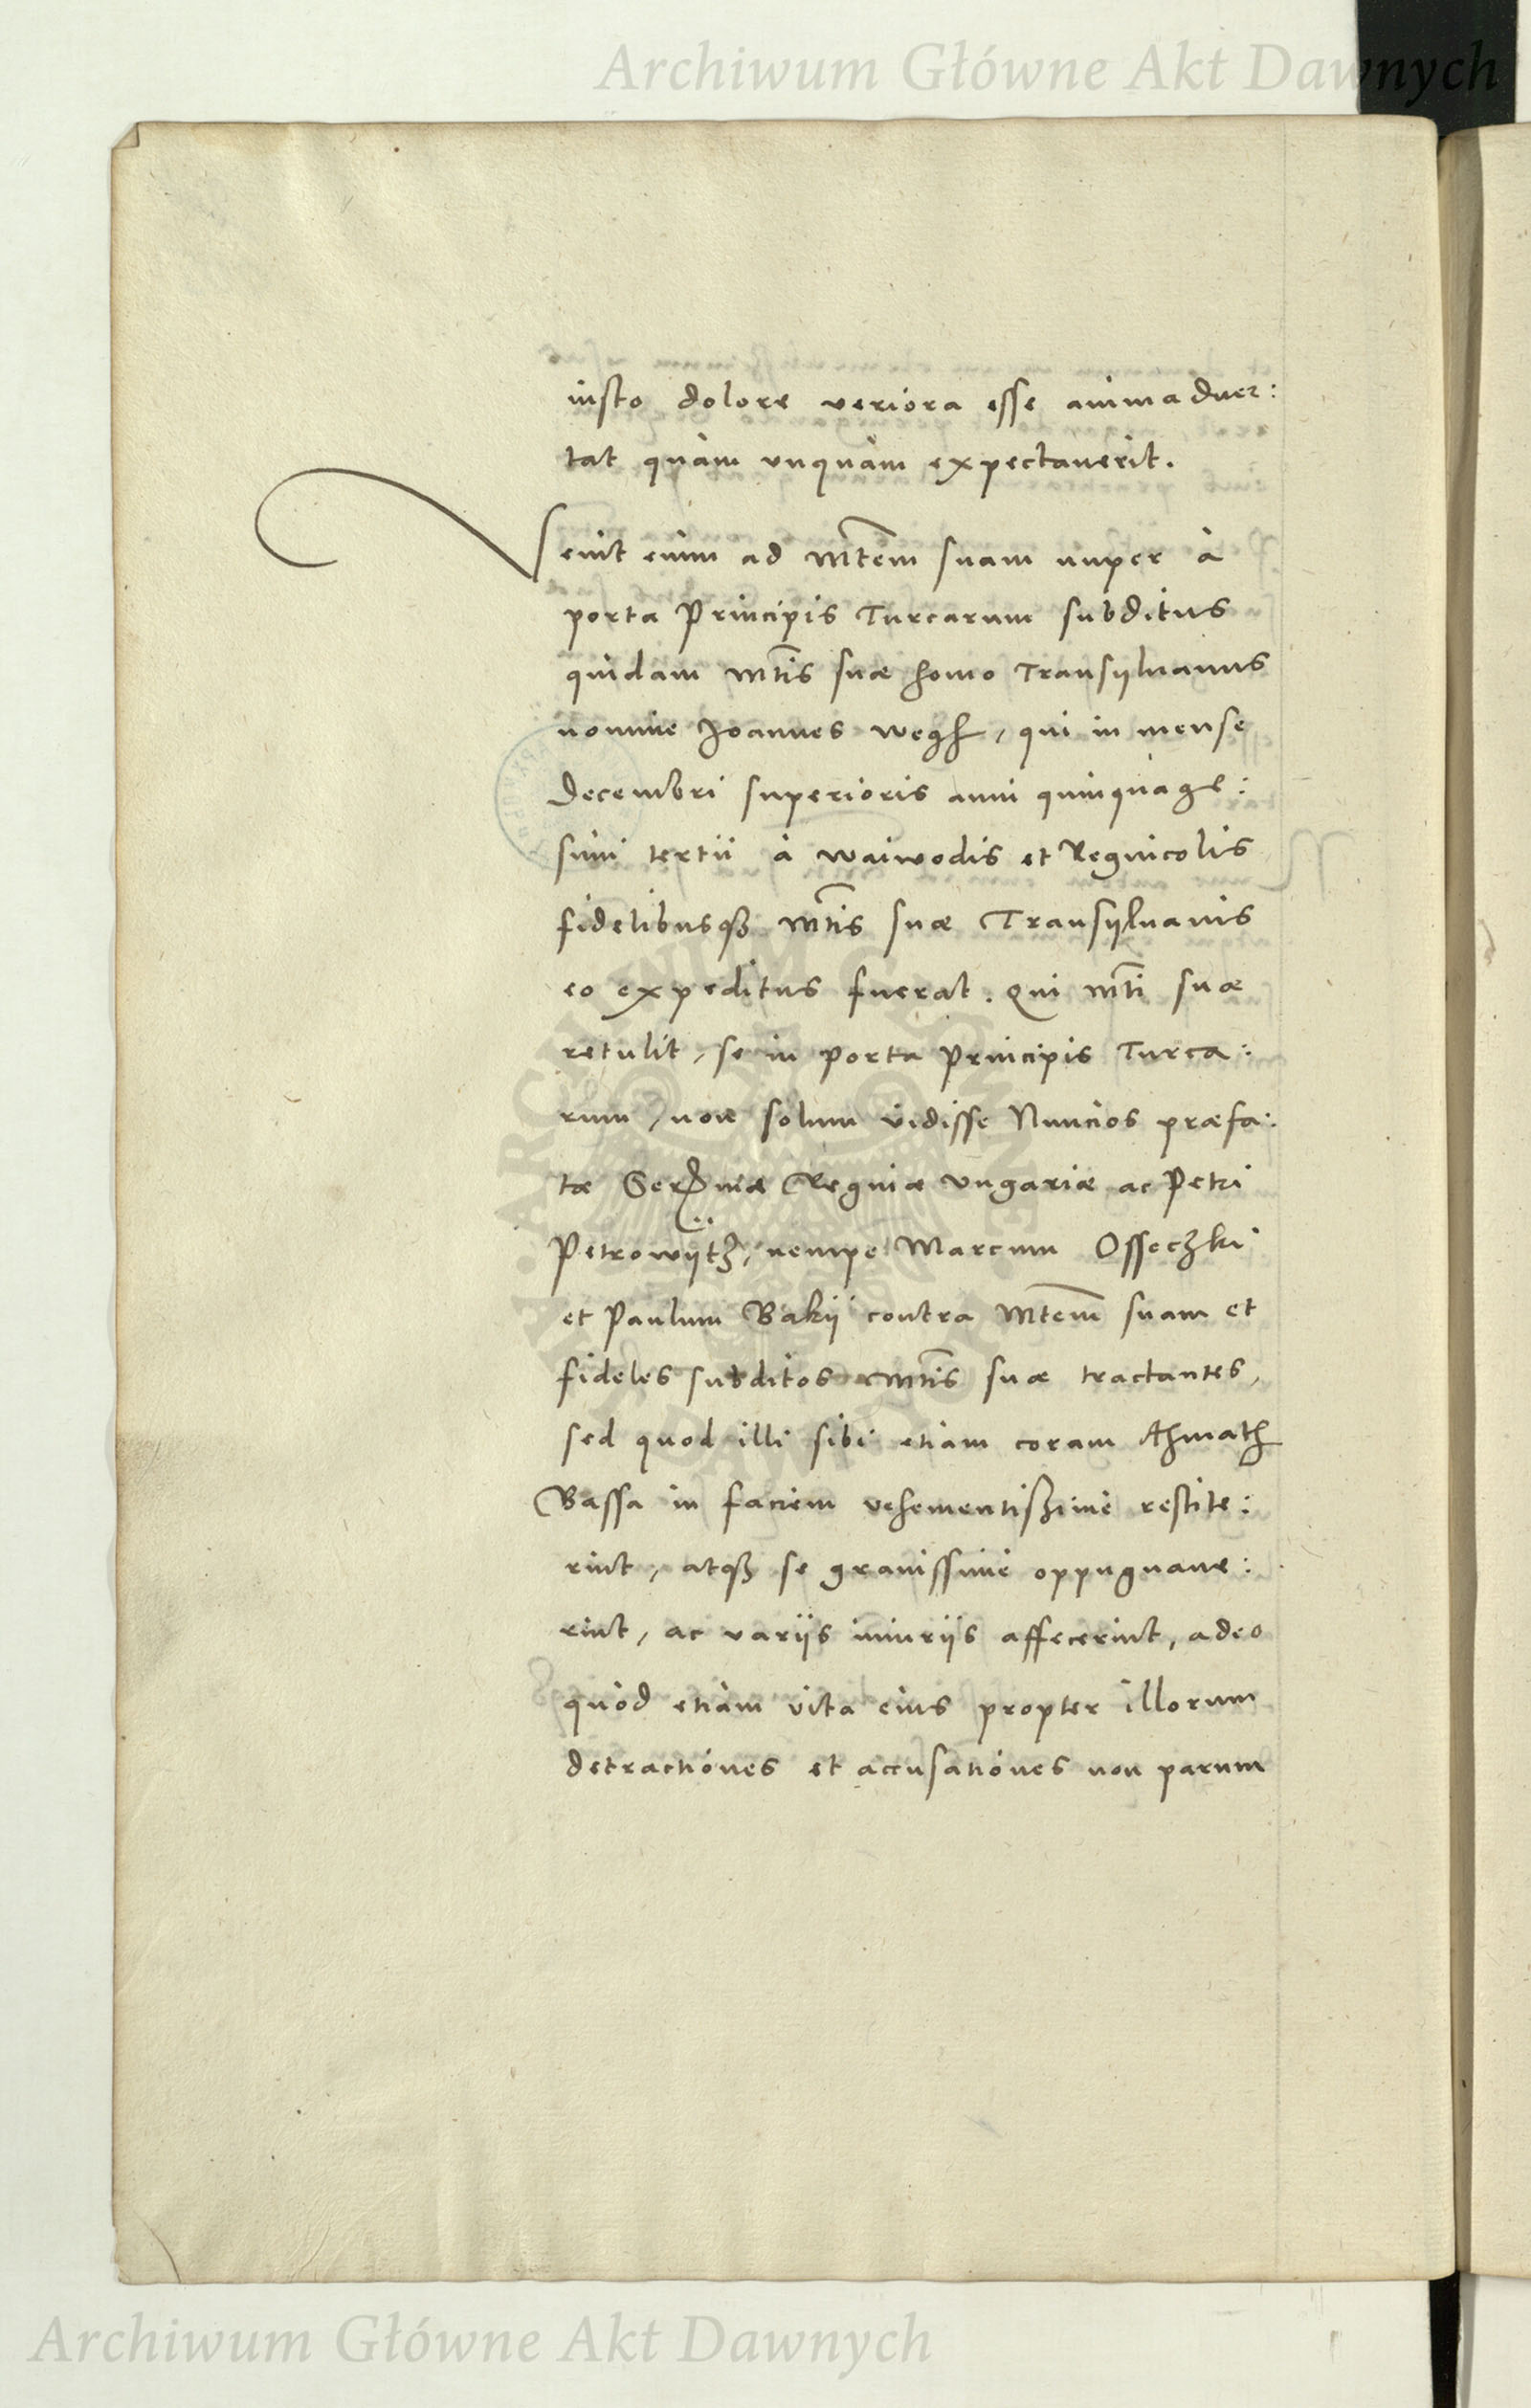 Archiwum Główne Akt Dawnych
iusto dolore veriora esse animaduer:
tat quàm vnquàm expectauerit.
Venit enim ad Mtem suam nuper à
porta Principis Turcarum subditus
quidam Mtis suæ homo Transyluanus
nomine Joannes Wegh, qui in mense
Decembri superioris anni quinquage:
simi tertii à Waiwodis et Regnicolis
fidelibusqȝ Mtis suæ Transyluanis
eo expeditus fuerat. Qui Mti suæ
retulit, se in porta Principis Turca:
rum, non solum vidisse Nuncios præfa:
tæ Serniæ Reginæ Vngariæ ac Petri
Petrowÿtz, nempe Marcum Osseczki
et Paulum Bakÿ contra Mtem suam et
fideles subditos Mtis suæ tractantes,
sed quod illi sibi etiam coram Ahmath
Bassa in faciem vehementissime restite:
rint, atqȝ se grauissime oppugnaue:
rint, ac variis iniuriis affecerint, adeo
quòd etiàm vita eius propter illorum
detractiones et accusationes non parum
Archiwum Główne Akt Dawnych